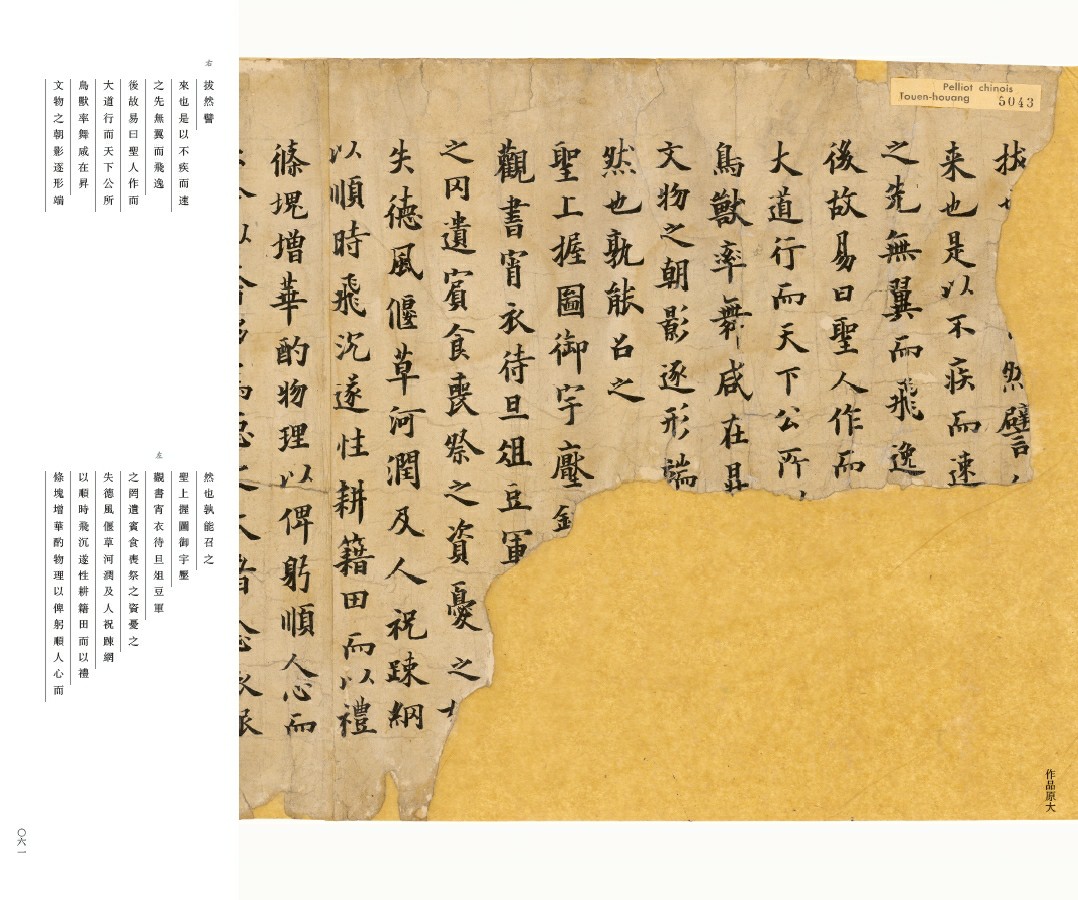 Pelliot chinois
Touen-houang 5043
拔然譬
来也是以不疾而速
之先無翼而飛逸
後故易曰聖人作而
大道行而天下公所
鳥獸率舞咸在昇
文物之朝影逐形端
然也孰能召之
聖上握圖御宇壓
觀書宵衣待旦俎豆軍
之罔遺賓食喪祭之資憂之
失德風偃草河潤及人祝踈網
以順時飛沉遂性耕籍田而以禮
條塊增華酌物理以俾躬順人心而
作品原大
右
拔然譬
來也是以不疾而速
之先無翼而飛逸
後故易曰聖人作而
大道行而天下公所
鳥獸率舞咸在昇
文物之朝影逐形端
左
然也孰能召之
聖上握圖御宇壓
觀書宵衣待旦俎豆軍
之罔遺賓食喪祭之資憂之
失德風偃草河潤及人祝踈網
以順時飛沉遂性耕籍田而以禮
條塊增華酌物理以俾躬順人心而
〇六一